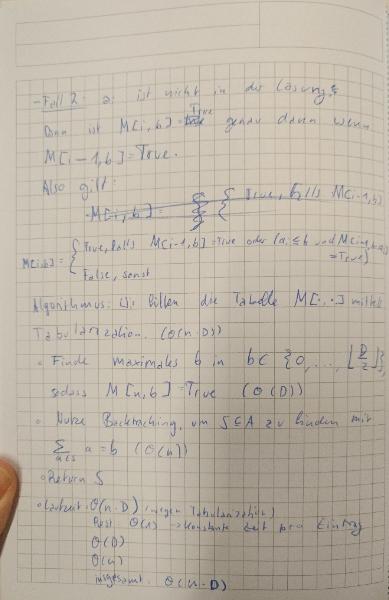 - Fall 2: ai ist nicht in der Lösung
Dann ist M[i,b] = True genau dann wenn
M[i-1,b] = True.
Also gilt:
M[i,b] = { True, falls M[i-1,b]
M[i,b] = { True, falls M[i-1,b] = True oder (ai ≤ b und M[i-1,b-ai] = True)
False, sonst
Algorithmus: Wir füllen die Tabelle M[·,·] mittels
Tabularization. (O(n·D))
· Finde maximales b in b ∈ {0, ..., ⌊D/2⌋},
sodass M[n,b] = True (O(D))
· Nutze Backtracking, um S⊆A zu finden mit
∑ a∈S a = b (O(n))
· Return S
· Laufzeit: O(n·D) (wegen Tabularization)
O(1) → konstante Zeit pro Eintrag
O(D)
O(n)
insgesamt: O(n·D)